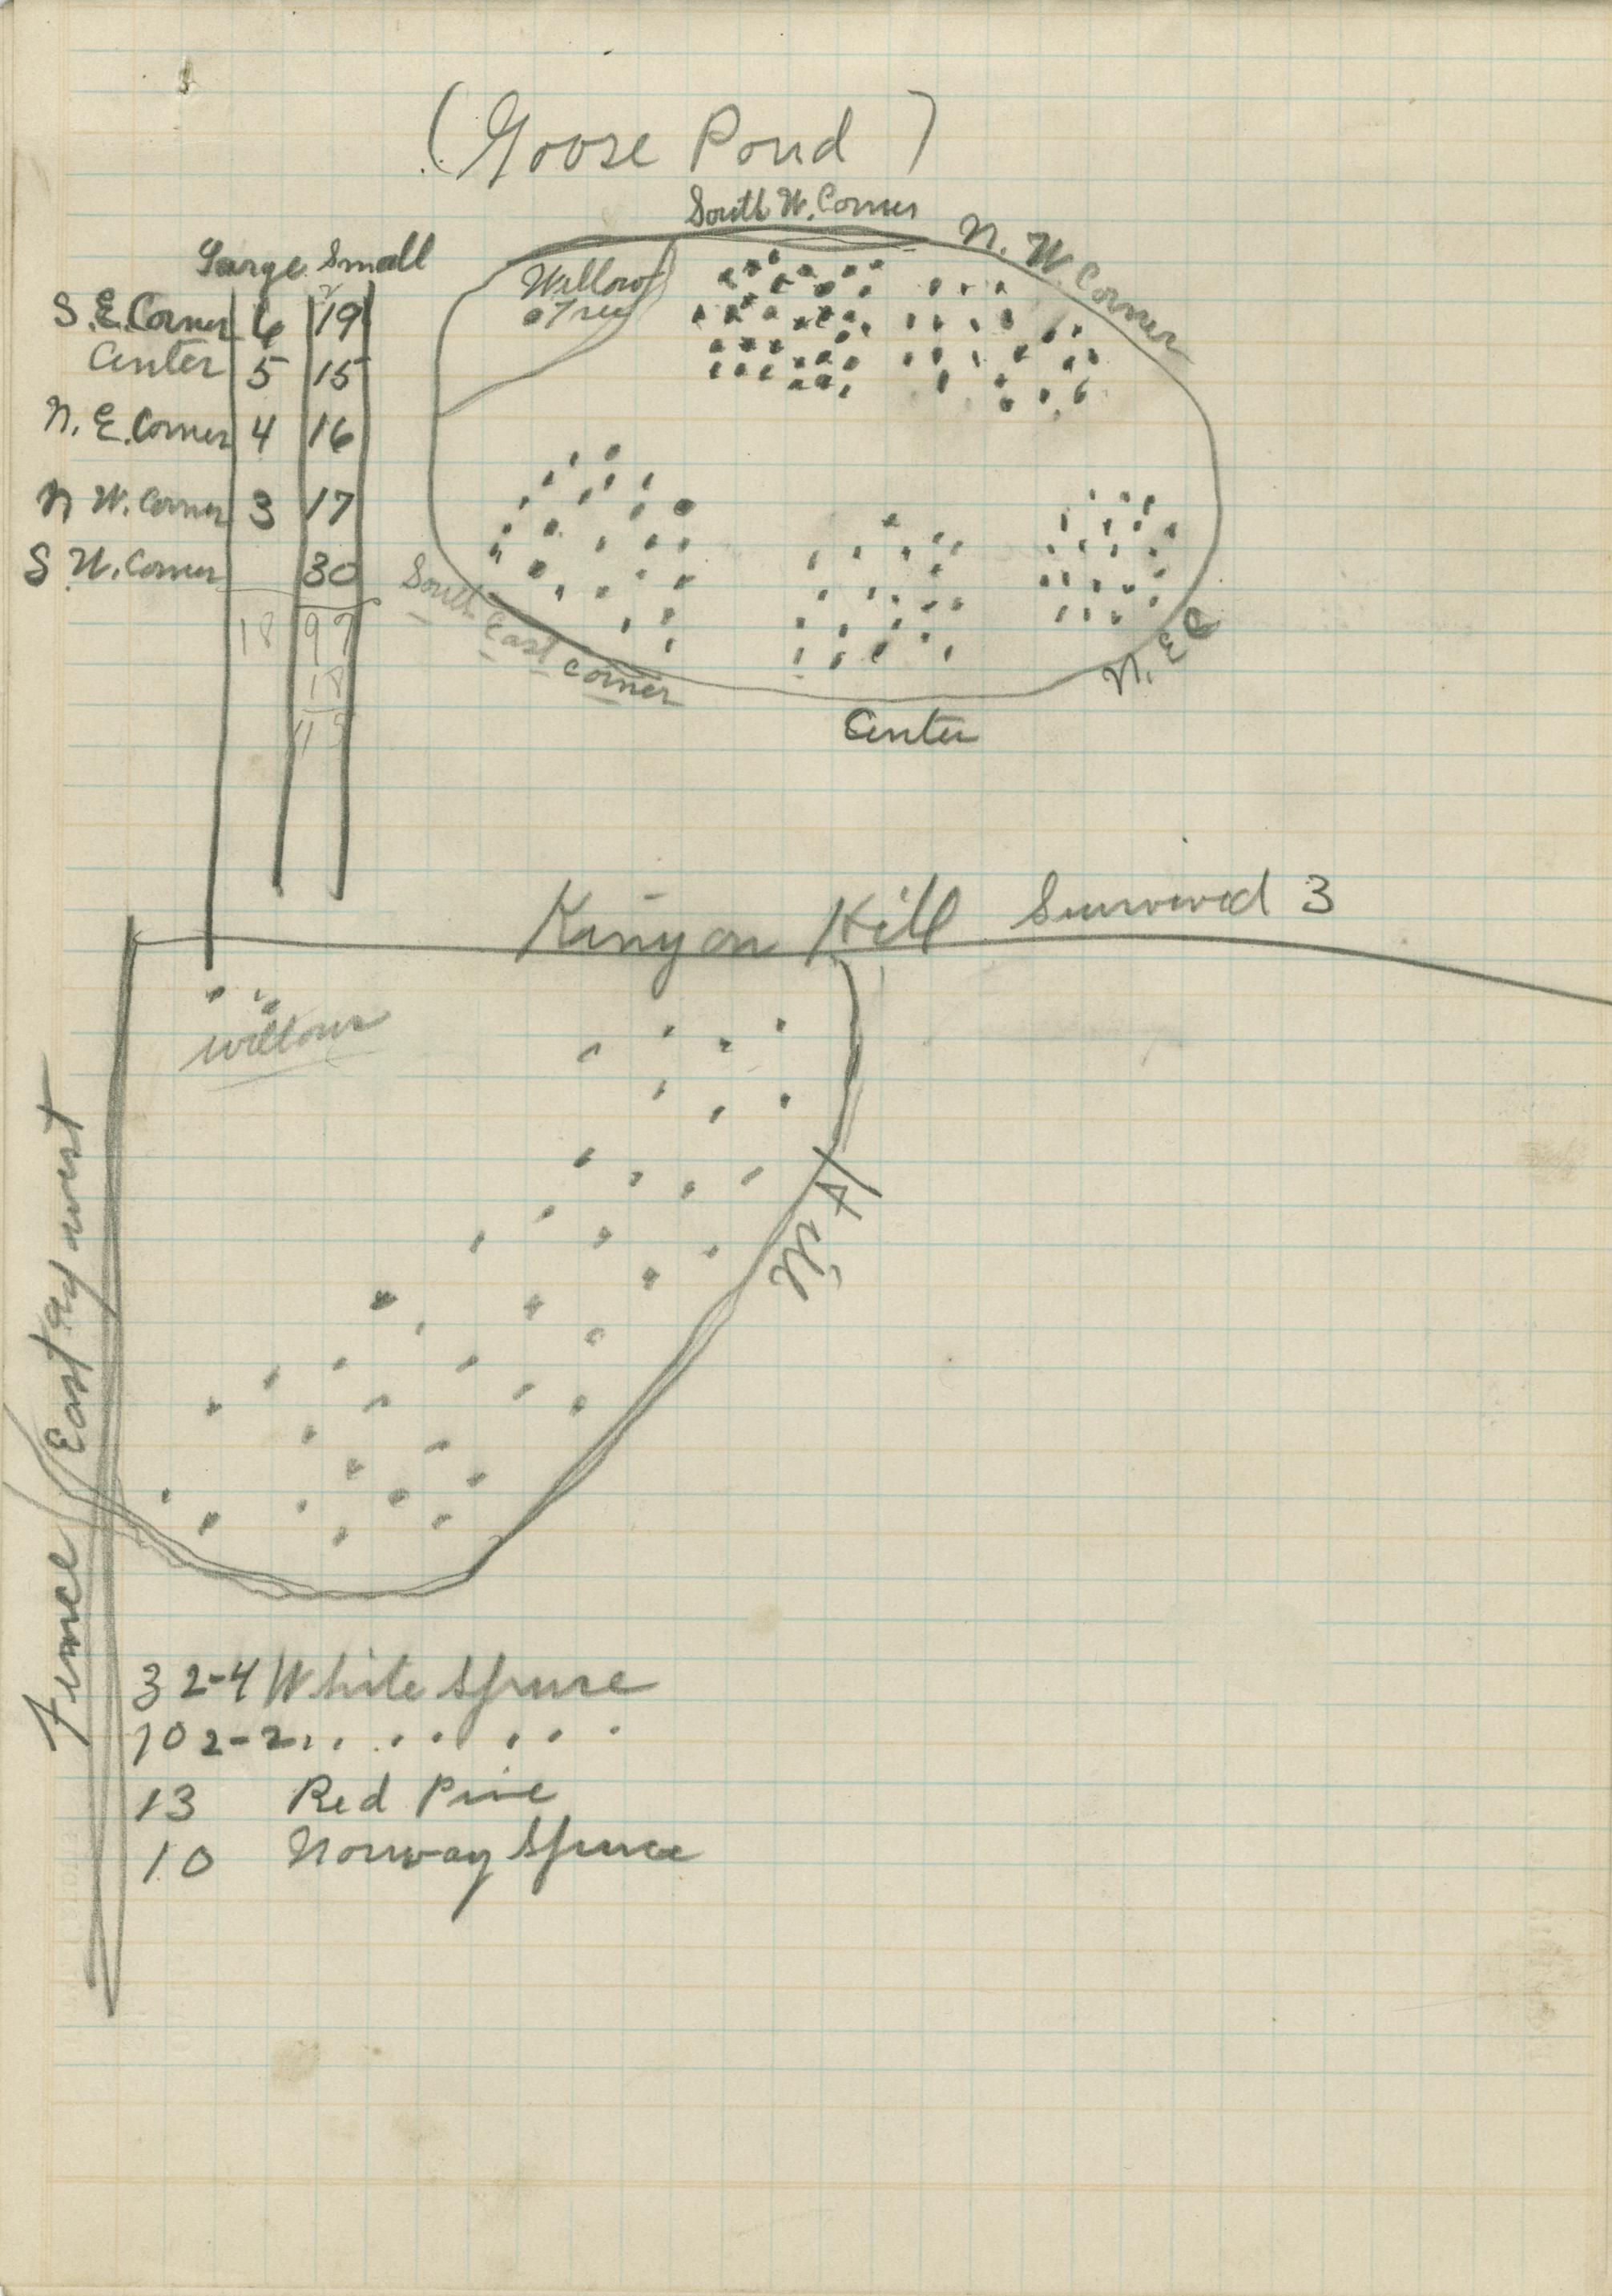 (Goose Pond)
South W. Corner
N. W. Corner
Large Small
Willow
Tree
S.E. Corner 6 19
Center 5 15
N. E. Corner 4 16
N W. Corner 3 17
S W. Corner 30
18 97
18
115
South East Corner
N. E C
Center
Kinyon Hill Survived 3
willows
Fence East and west
32-4 White Spruce
10 2-2 " " " " " "
13 Red Pine
10 Norway Spruce